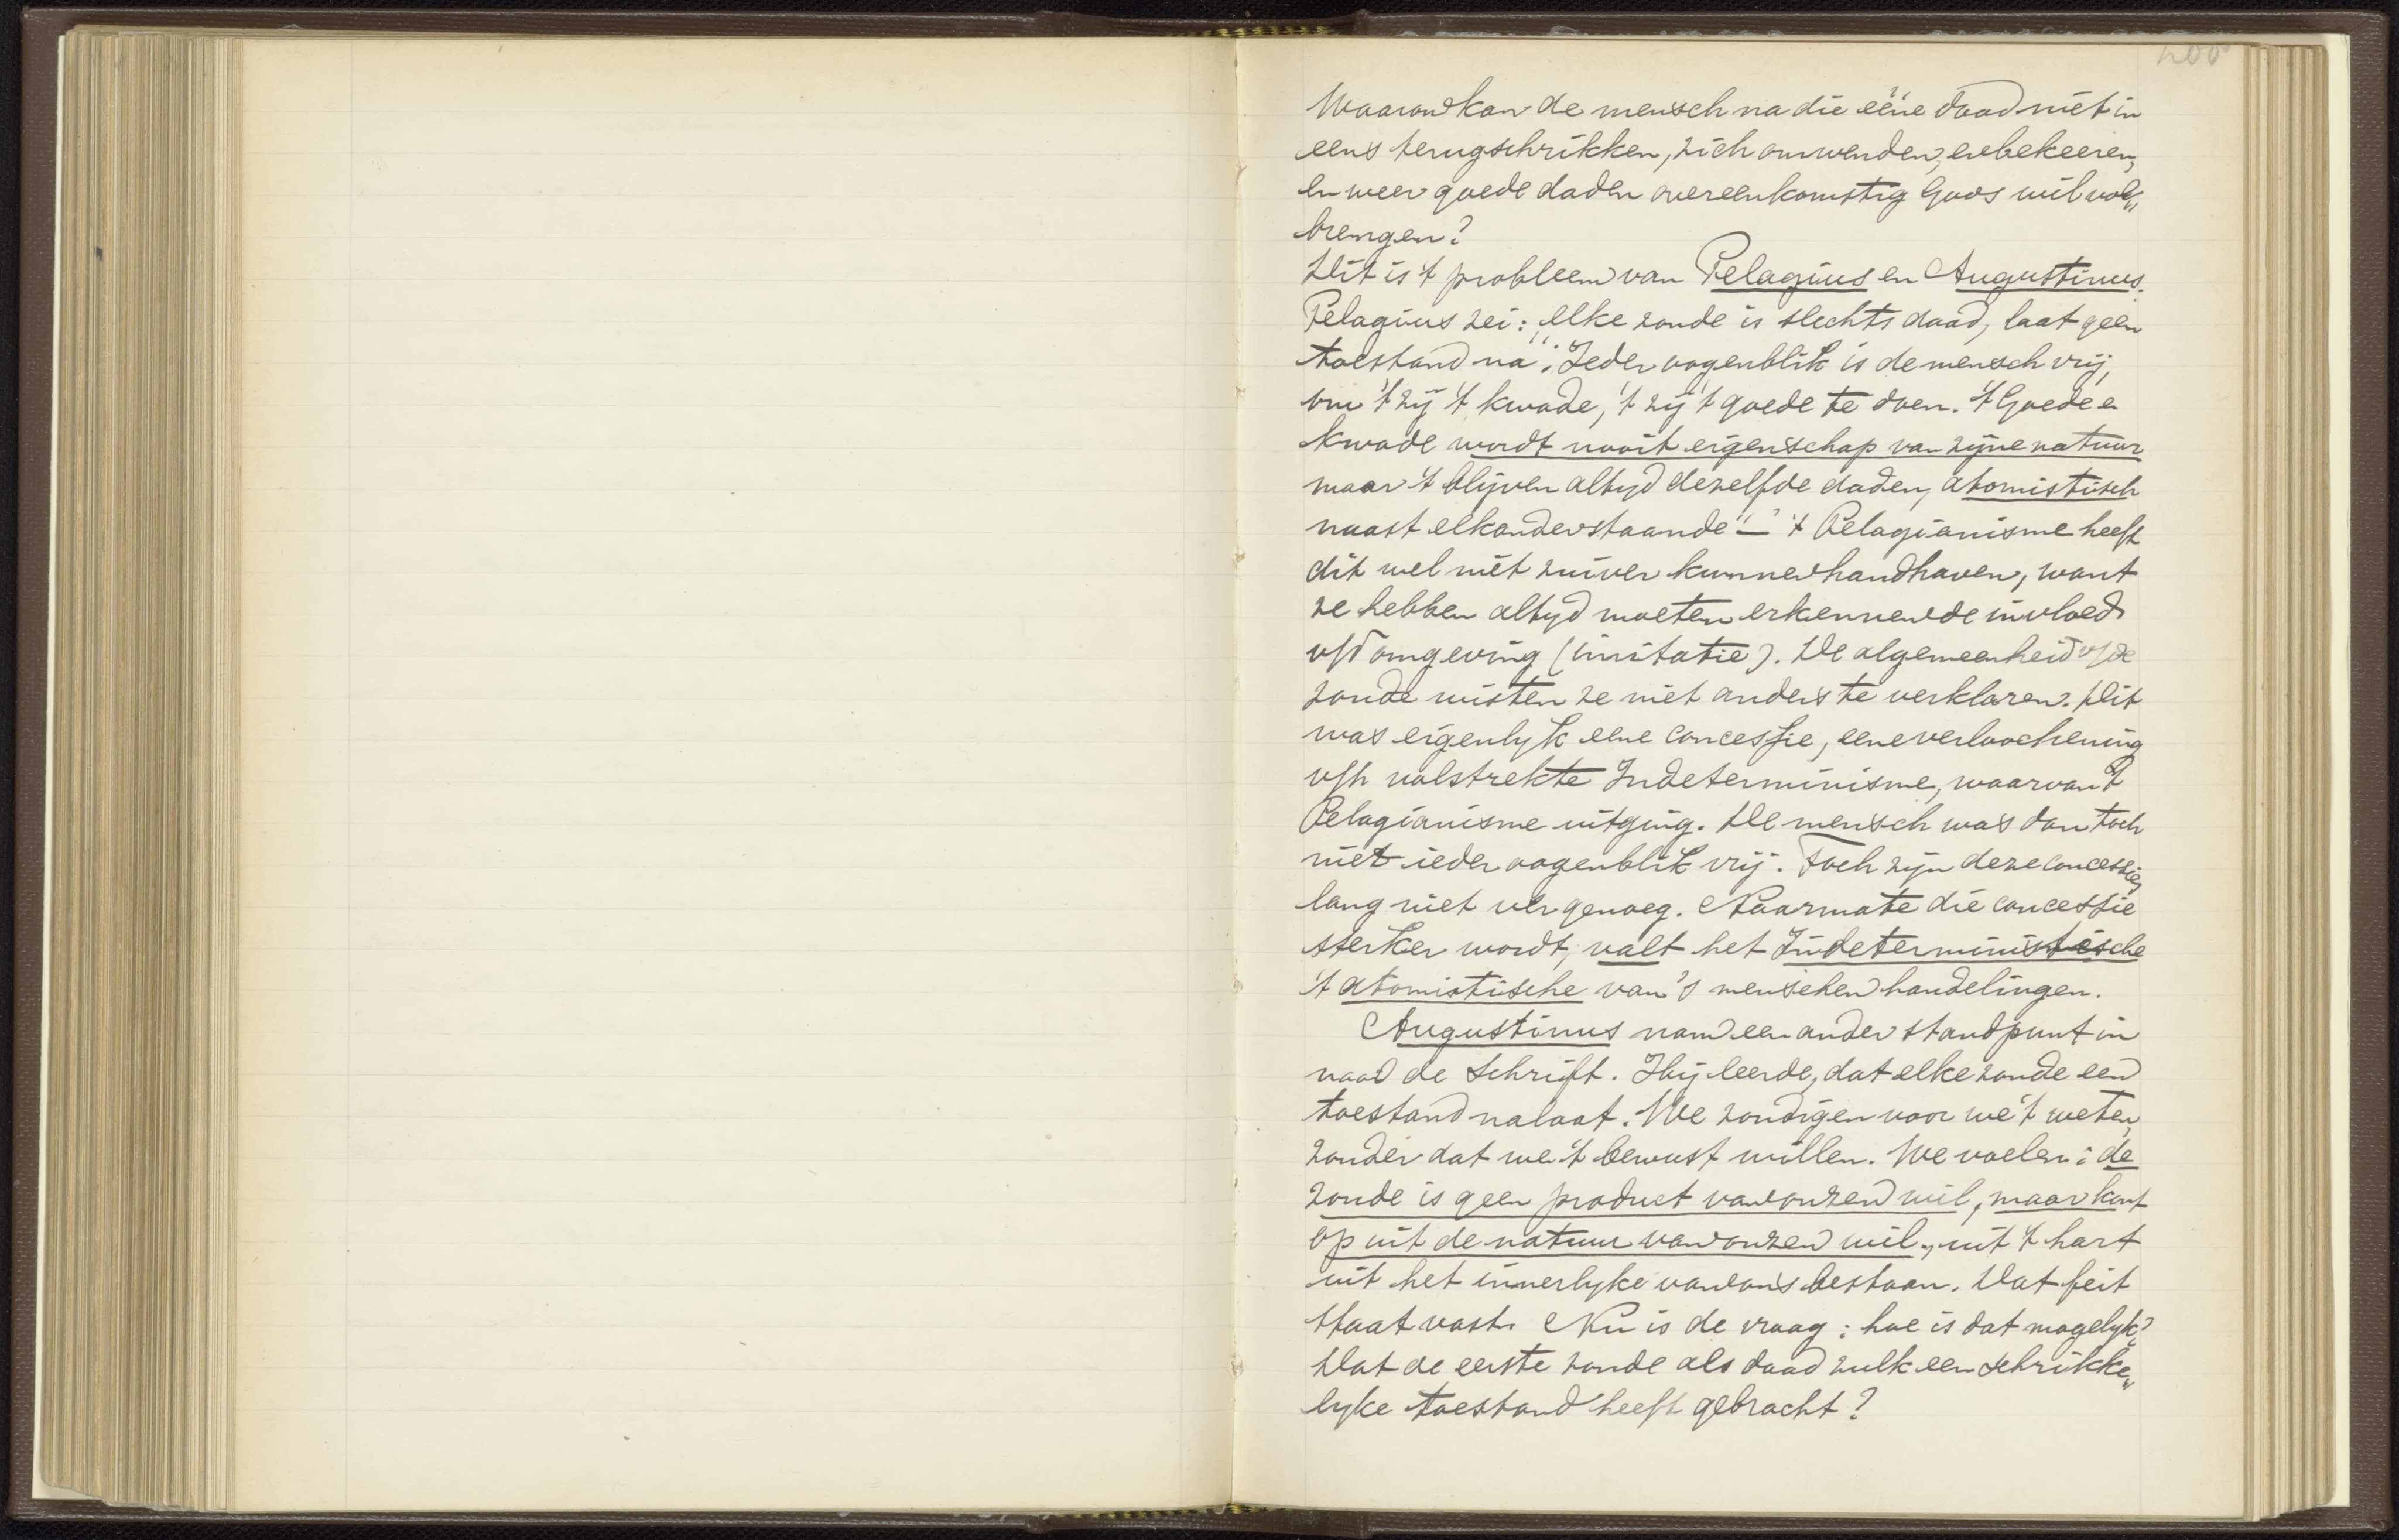 200
Waarom kan de mensch na die ééne daad niet in
eens terugschrikken, zich omwenden, en bekeeren,
en weer goede daden overeenkomstig Gods wil vol„
brengen?
Dit is 't probleem van Pelagius en Augustinus.
Pelagius zei: „elke zonde is slechts daad, laat geen
toestand na". Ieder oogenblik is de mensch vrij,
om 't zij 't kwade, 't zij 't goede te doen. 't Goede en
kwade wordt nooit eigenschap van zijne natuur
maar 't blijven altyd dezelfde daden, atomistisch
naast elkander staande" — 't Pelagianisme heeft
dit wel niet zuiver kunnen handhaven, want
ze hebben altyd moeten erkennen de invloed
v/d omgeving (imitatie). De algemeenheid v/de
zonde wisten ze niet anders te verklaren. Dit
was eigenlyk eene concessie, eene verloochening
v/h volstrekte Indeterminisme, waarvan 't
Pelagianisme uitging. De mensch was dan toch
niet ieder oogenblik vrij. Toch zijn deze concessies
lang niet ver genoeg. Naarmate die concessie
sterker wordt, valt het Indeterministische
't atomistische van 's menschen handelingen.
Augustinus nam een ander standpunt in
naar de Schrift. Hij leerde, dat elke zonde een
toestand nalaat. We zondigen voor we 't weten,
zonder dat we 't bewust willen. We voelen: de
zonde is geen product van onzen wil, maar komt
op uit de natuur van onzen wil, uit 't hart
uit het innerlyke van ons bestaan. Dat feit
staat vast. Nu is de vraag: hoe is dat mogelyk?
Dat de eerste zonde als daad zulk een schrikke„
lyke toestand heeft gebracht?